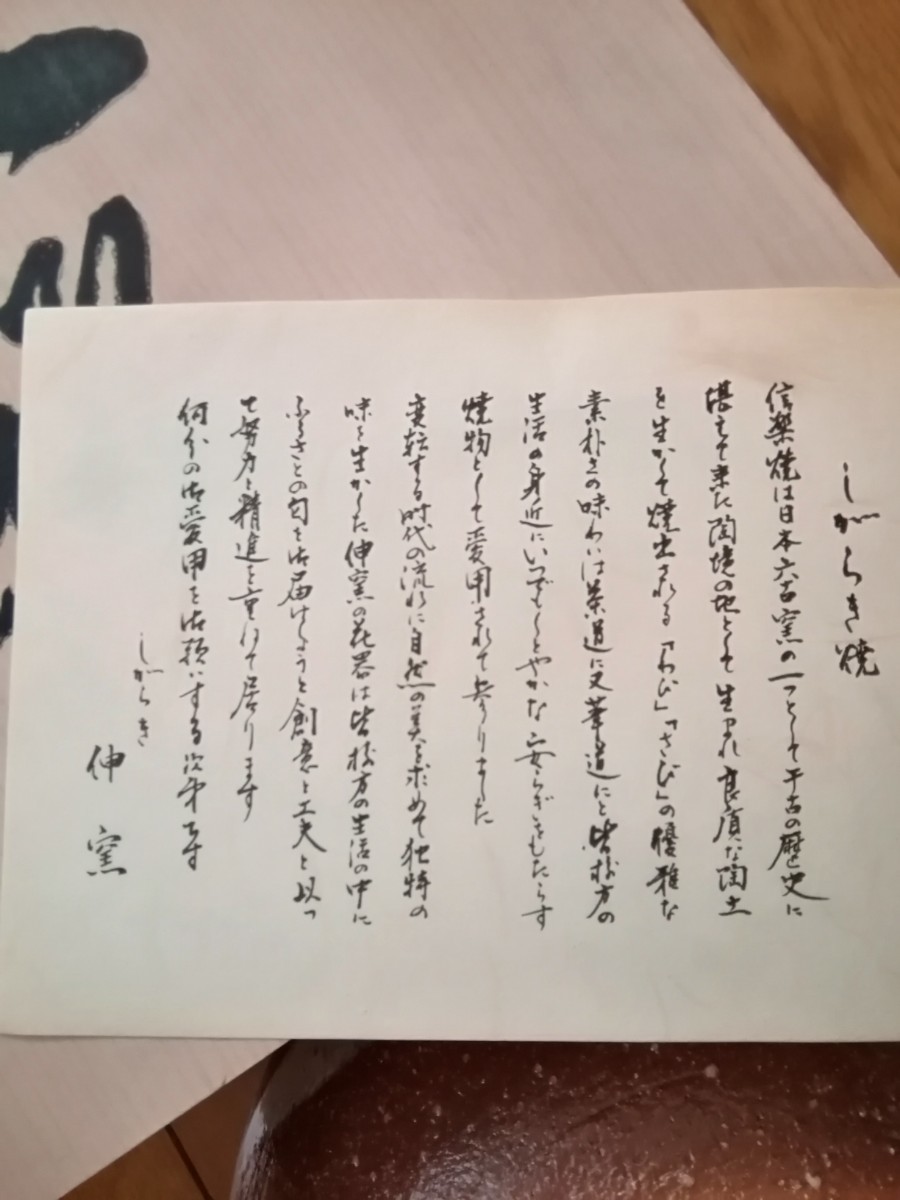 しがらき焼
信楽焼は日本六古窯の一つとして千古の歴史に
堪えて来た陶境の地として生まれ良質な陶土
を生かして焼出される「わび」「さび」の優雅な
素朴さの味わいは茶道に又華道にと皆様方の
生活の身近にいつでもしとやかな安らぎをもたらす
焼物として愛用されて参りました
変転する時代の流れに自然の美を求めて独特の
味を生かした伸窯の花器は皆様方の生活の中に
ふるさとの匂を御届けしようと創意と工夫と以っ
て努力と精進を重ねて居ります
何分の御愛用を御願いする次第です
しがらき
伸窯